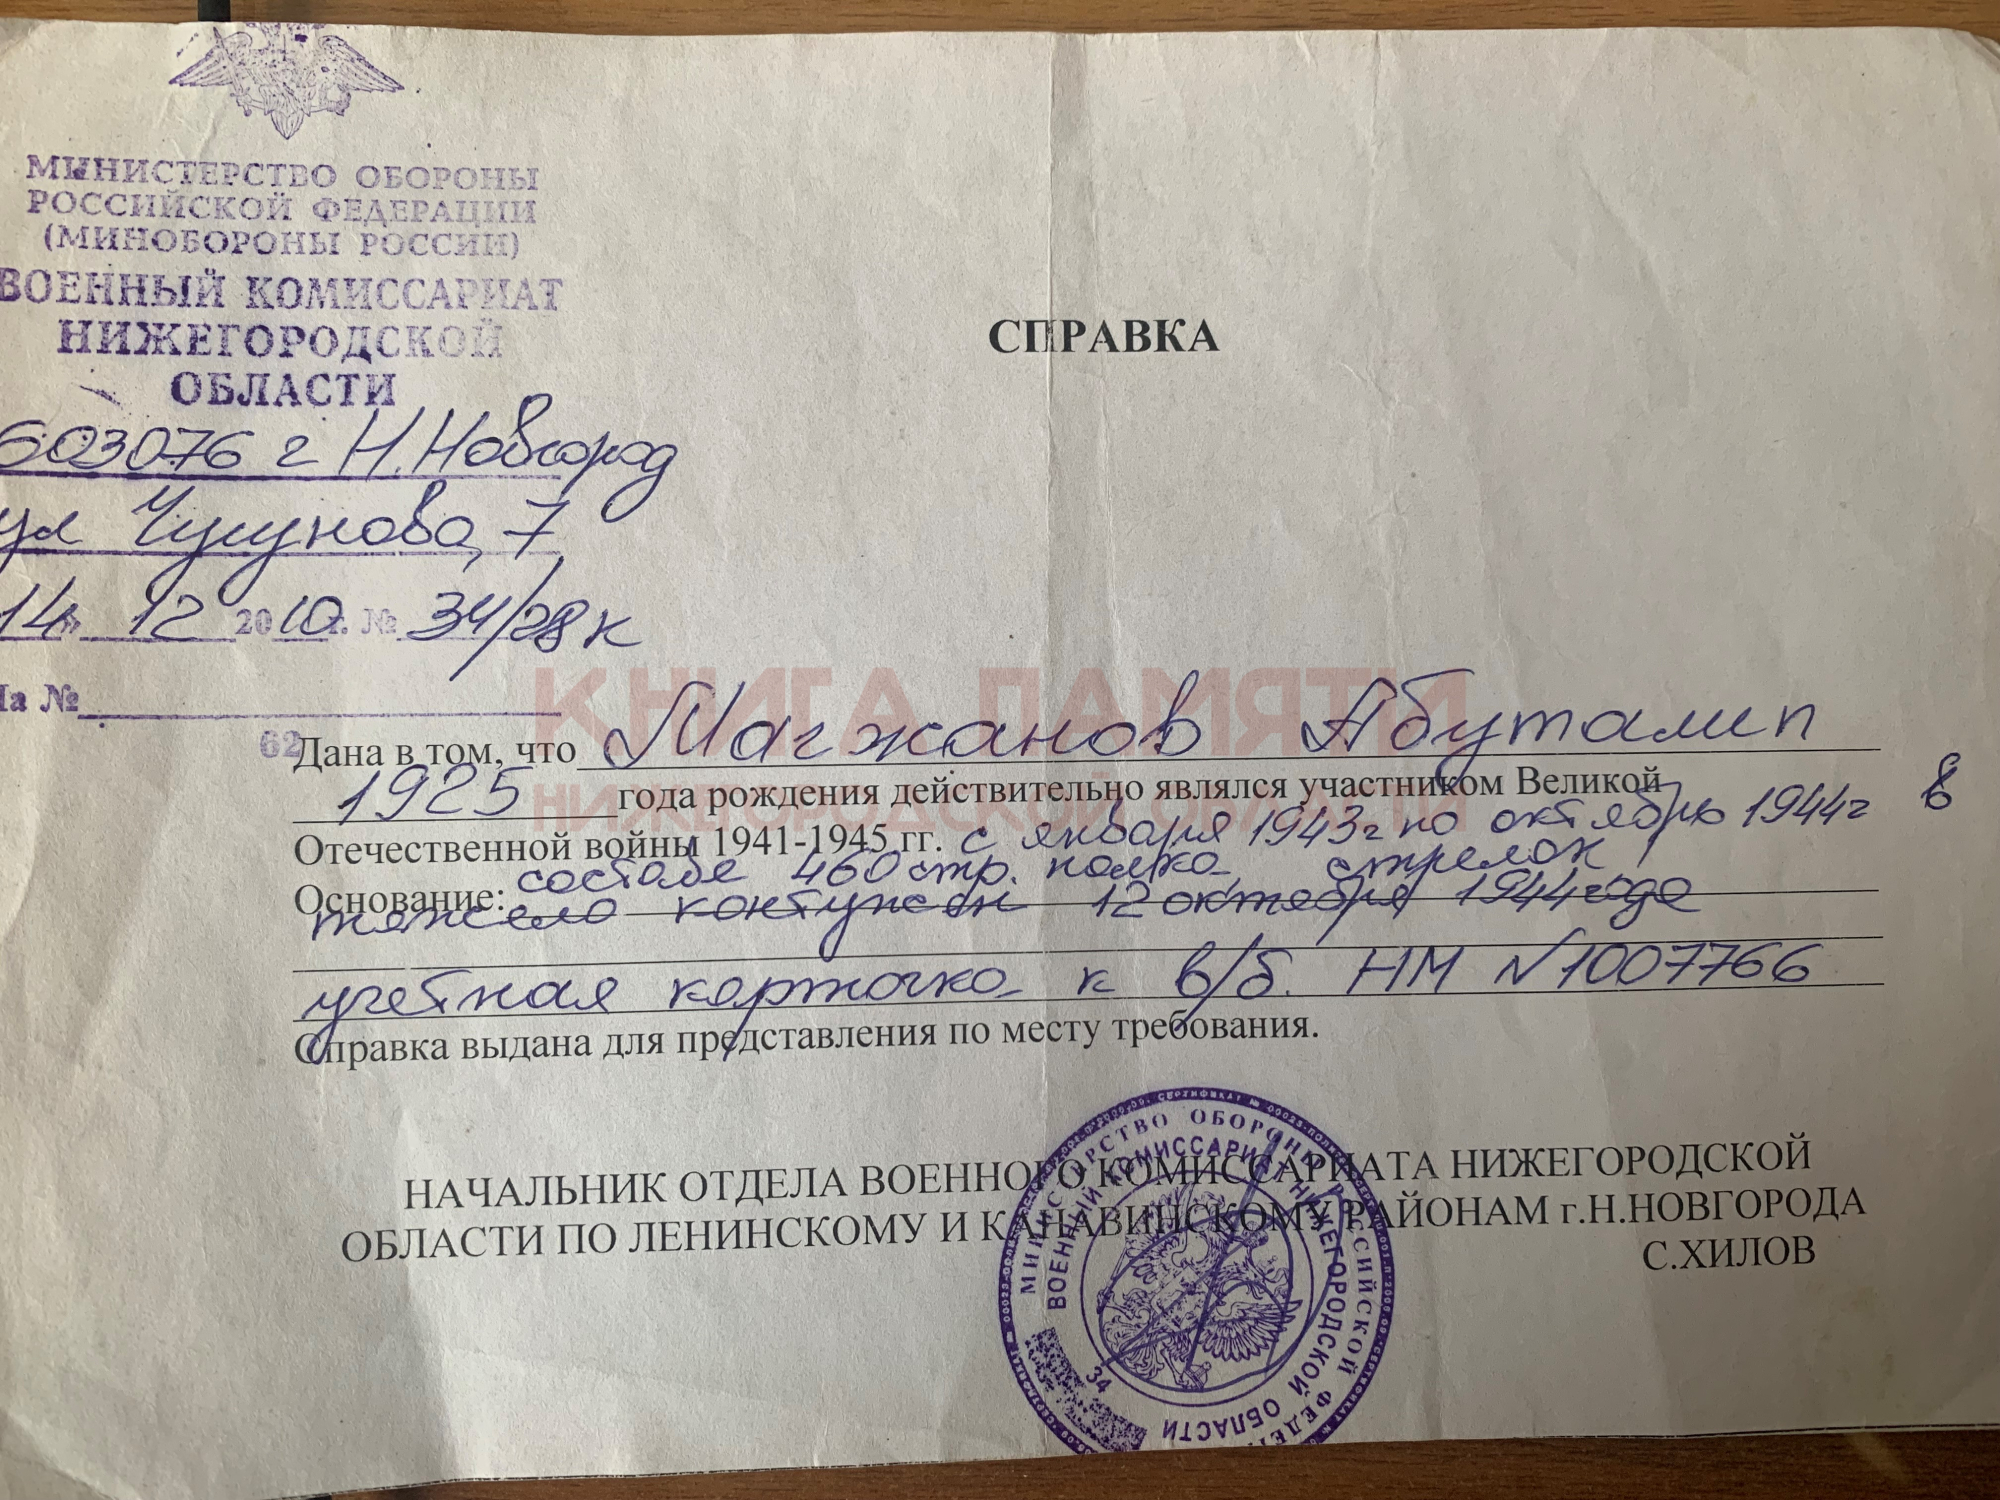 МИНИСТЕРСТВО ОБОРОНЫ
РОССИЙСКОЙ ФЕДЕРАЦИИ
(МИНОБОРОНЫ РОССИИ)
ВОЕННЫЙ КОМИССАРИАТ
НИЖЕГОРОДСКОЙ
ОБЛАСТИ
603076 г Н.Новгород
ул Чугунова, 7
14» 12 2010г. № 34/28к
На №
62
СПРАВКА
КНИГА ПАМЯТИ
НИЖЕГОРОДСКОЙ ОБЛАСТИ
Дана в том, что Магжанов Абуталип
1925 года рождения действительно являлся участником Великой
Отечественной войны 1941-1945 гг. с января 1943г по октябрь 1944г в
составе 460 стр. полка, стрелок,
Основание:
тяжело контужен 12 октября 1944 года
учетная карточка к в/б. НМ №1007766
Справка выдана для представления по месту требования.
НАЧАЛЬНИК ОТДЕЛА ВОЕННОГО КОМИССАРИАТА НИЖЕГОРОДСКОЙ
ОБЛАСТИ ПО ЛЕНИНСКОМУ И КАНАВИНСКОМУ РАЙОНАМ г.Н.НОВГОРОДА
С.ХИЛОВ
МИНИСТЕРСТВО ОБОРОНЫ РОССИЙСКОЙ
ВОЕННЫЙ КОМИССАРИАТ НИЖЕГОРОДСКОЙ ОБЛАСТИ
34